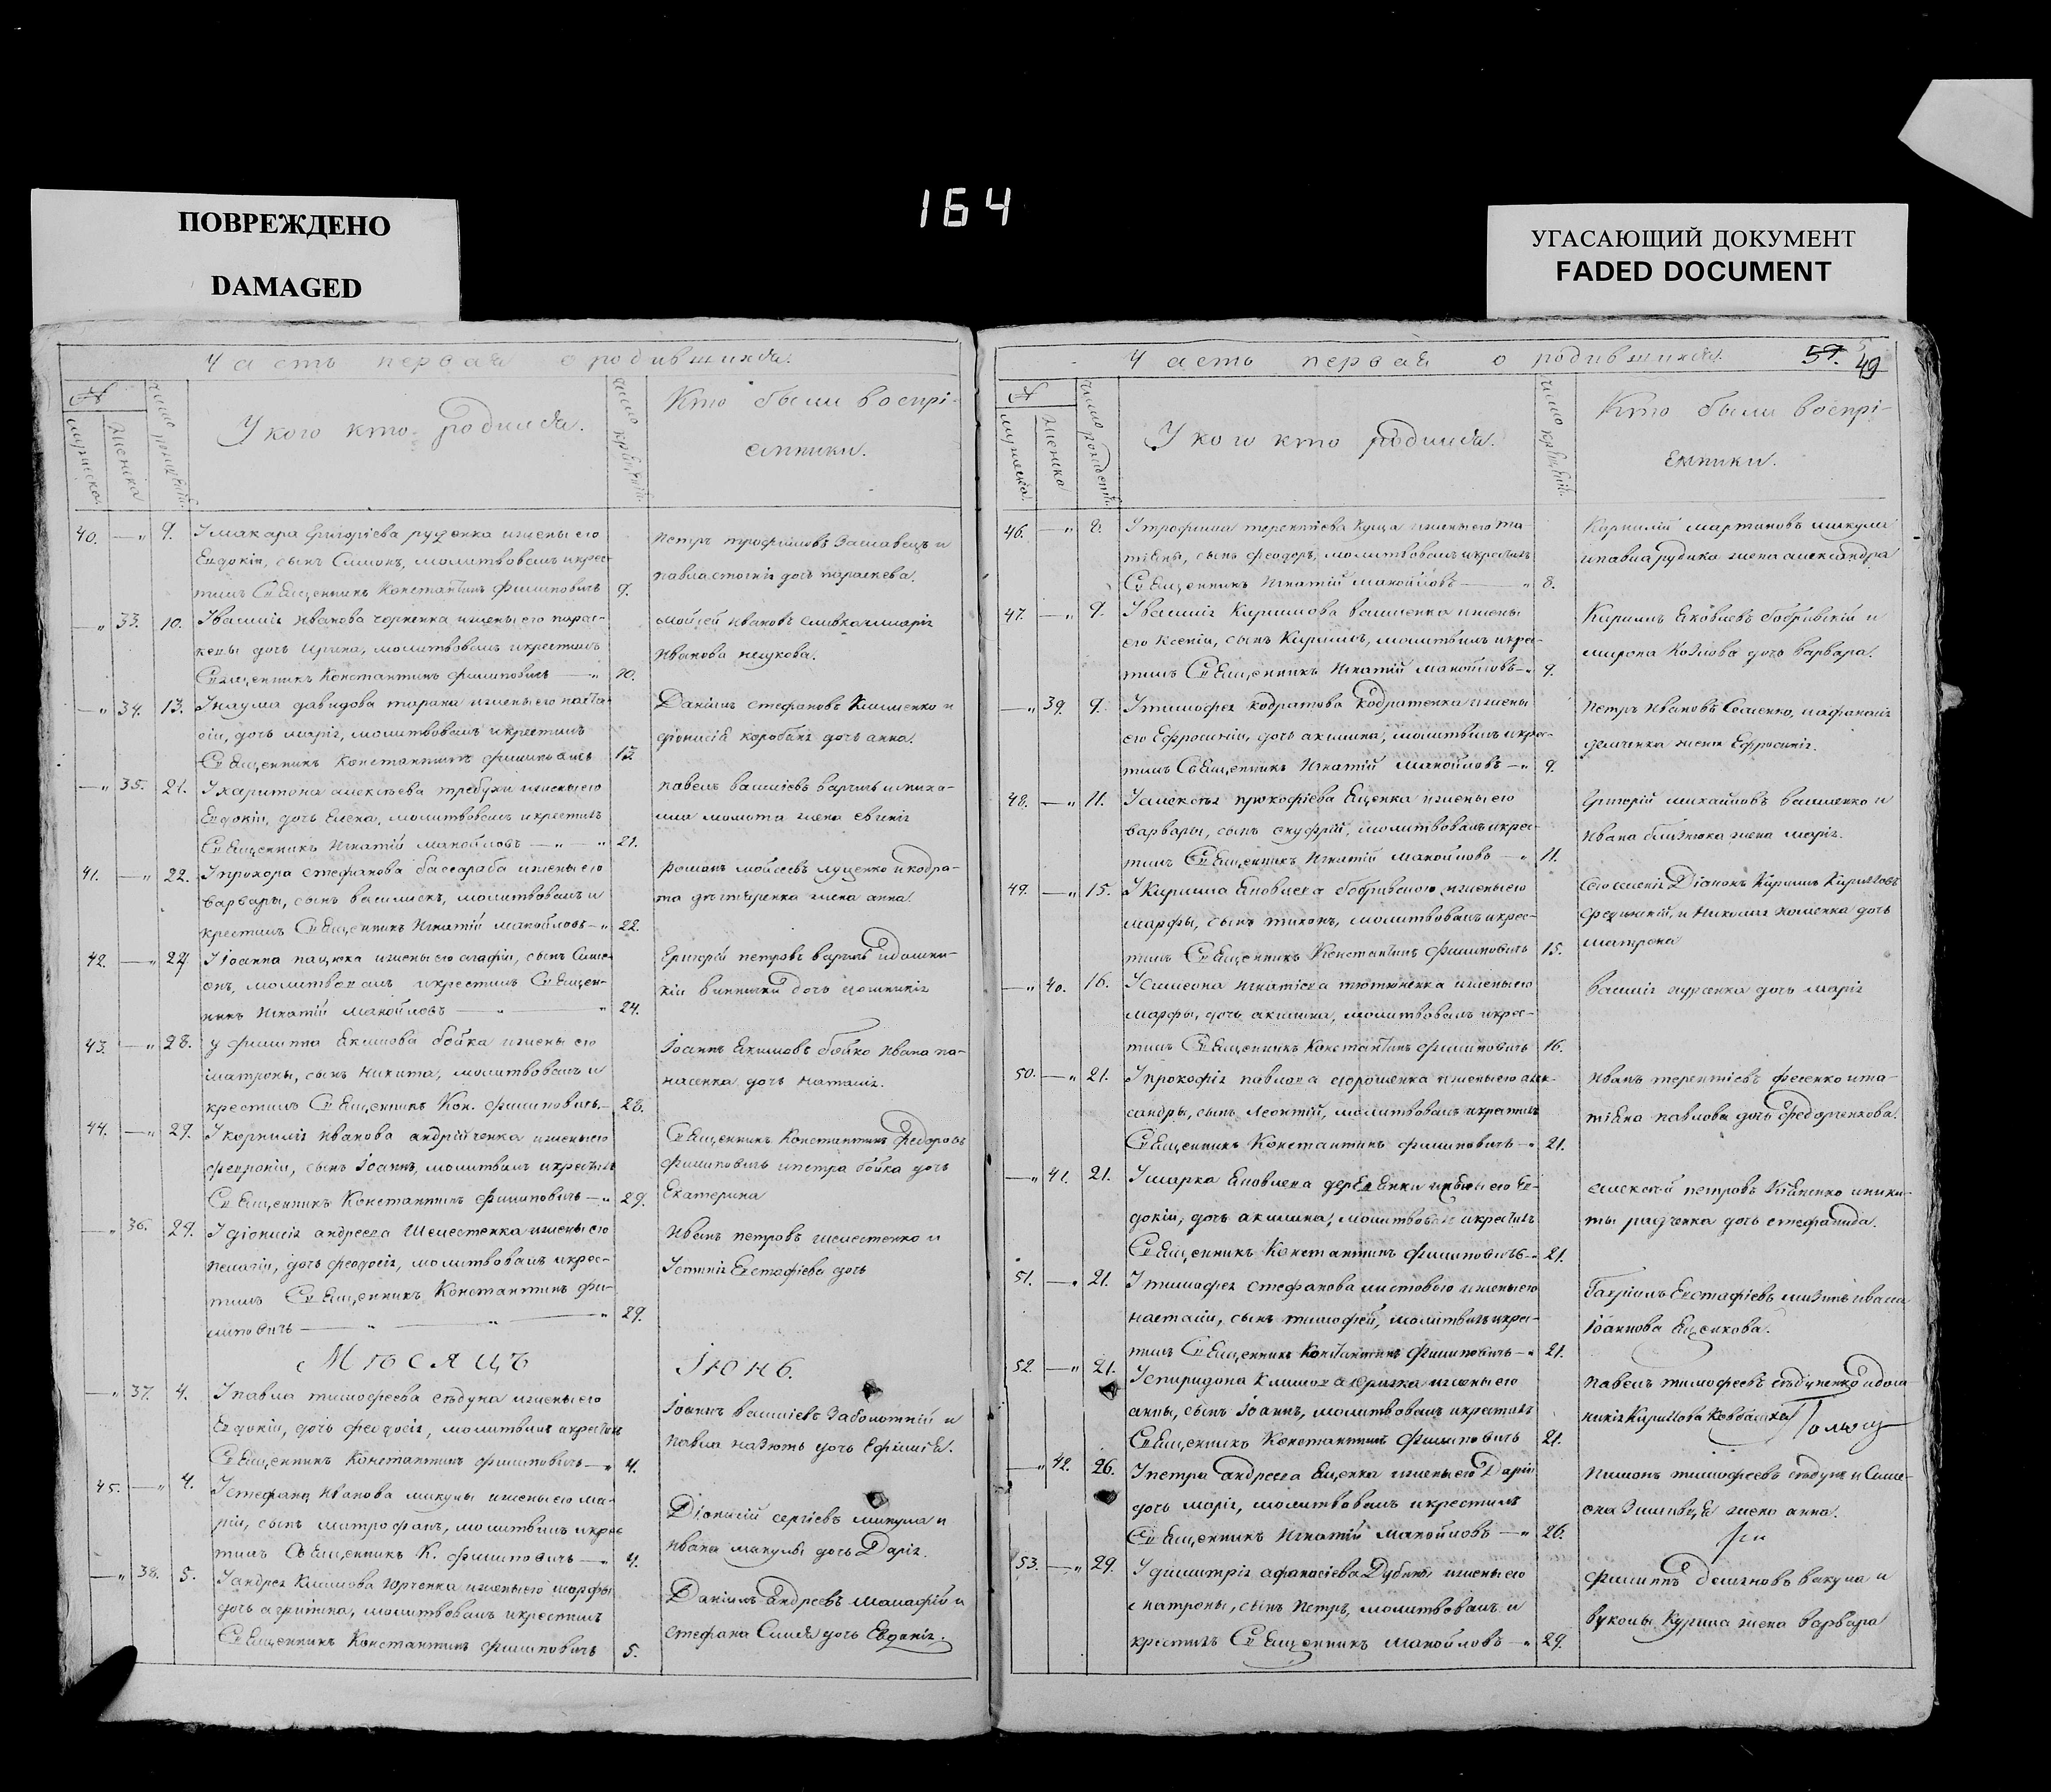 164
ПОВРЕЖДЕНО
DAMAGED
УГАСАЮЩИЙ ДОКУМЕНТ
FADED DOCUMENT
Часть первая о родившихся.
№
мужеска.
женска
число рождений.
У кого кто родился.
число крещений.
Кто были воспрі-
емники.
40. — „ 9. У макара григоріева руденка и жены его
Евдокіи, сынъ Симонъ, молитвовалъ и крес-
тилъ Священникъ Константинъ филиповичъ 9.
Петръ трофимовъ Заславецъ и
павла дочь параскева.
— „ 33. 10. У василія Иванова чорненка и жены его парас-
кевы дочь Ирина, молитвовалъ и крестилъ
Священникъ Константинъ филиповичъ — „ 10.
мойсей Ивановъ сливка и марія
Иванова
— „ 34. 13. У наума давидова тарана и жены его наста-
сіи, дочь марія, молитвовалъ и крестилъ
Священникъ Константинъ филиповичъ 13
Даніилъ стефановъ Клименко и
діонисія дочь анна.
— „ 35. 21. У харитона алексѣева требухи и жены его
Евдокіи, дочь Елена, молитвовалъ и крестилъ
Священникъ Игнатій манойловъ — „ — „ 21.
павелъ василіевъ и
молота жена евгенія
41. — „ 22. У прохора стефанова басараба и жены его
варвары, сынъ василискъ, молитвовалъ и
крестилъ Священникъ Игнатій манойловъ — „ 22.
романъ мойсеевъ луценко и кодра-
та жена анна.
42. — „ 24. У Іоанна пацюка и жены его агафіи, сынъ Симе-
онъ, молитвовалъ и крестилъ Священ-
никъ Игнатій манойловъ — „ — „ 24.
Григорій петровъ и
дочь
43. — „ 28. у филиппа Екимова бойка и жены его
матроны, сынъ Никита, молитвовалъ и
крестилъ Священникъ Кон. филиповичъ. — 28.
Іоаннъ Екимовъ бойко Ивана па-
насенка дочь наталія.
44. — „ 29. У корнилія Иванова андрійченка и жены его
февроніи, сынъ Іоаннъ, молитвовалъ и крестилъ
Священникъ Константинъ филиповичъ — „ 29.
Священникъ Константинъ федоровъ
филиповичъ и петра бойка дочь
Екатерина
— „ 36. 29. У діонисія андреева Шелестенка и жены его
пелагіи, дочь феодосія, молитвовалъ и крес-
тилъ Священникъ Константинъ фи-
липовичъ — „ — „ — „ 29.
Иванъ петровъ шелестенко и
Устинія Евстафіева дочь
Мѣсяцъ Іюнь.
— „ 37. 4. У павла тимофеева сѣдуна и жены его
Евдокіи, дочь феодосія, молитвилъ и крестилъ
Священникъ Константинъ филиповичъ — „ 4.
Іоаннъ василіевъ Заболотній и
павла дочь Ефимія.
45. — „ 4. У стефана Иванова микулы и жены его ма-
ріи, сынъ митрофанъ, молитвилъ и крес
тилъ Священникъ К. филиповичъ — „ 4.
Діонисій сергіевъ микула и
Ивана микулы дочь Дарія.
— „ 38. 5. У андрея Климова Юрченка и жены его марфы
дочь агрипина, молитвовалъ и крестилъ
Священникъ Константинъ филиповичъ 5.
Даніилъ андреевъ и
стефана дочь Евдокія.
Часть первая о родившихся.
59. 49
№
мужеска.
женска
число рождений
У кого кто родился.
число крещений.
Кто были воспрі-
емники.
46. — „ 8. У трофима терентіева Куца и жены его та
тіяны, сынъ феодоръ, молитвовалъ и крестилъ
Священникъ Игнатій манойловъ — „ 8.
Корнилій мартиновъ микула
и павла рудика жена александра
47. — „ 9. У василія Кирилова василенка и жены
его Ксеніи, сынъ Кирилъ, молитвилъ и крес-
тилъ Священникъ Игнатій манойловъ — „ 9.
Кирилъ Яковлевъ бобривскій и
мирона Козлова дочь варвара.
— „ 39. 9. У тимофея кодратова кодратенка и жены
его Ефросиніи, дочь акилина, молитвилъ и крес-
тилъ Священникъ Игнатій манойловъ — „ 9.
Петръ Ивановъ Семенко, и афанасія
демченка жена Ефросинія.
48. — „ 11. У алексѣя прокофіева Яценка и жены его
варвары, сынъ онуфрій, молитвовалъ и крес-
тилъ Священникъ Игнатій манойловъ — „ 11.
Григорій михайловъ василенко и
Ивана близнюка жена марія.
49. — „ 15. У Кирила Яковлева бобривского и жены его
марфы, сынъ тихонъ, молитвовалъ и крес-
тилъ Священникъ Константинъ филиповичъ 15.
Сего селенія Діаконъ Кирилъ Кириловъ
и Николая дочь
матрона
— „ 40. 16. У Симеона Игнатіева тютюнника и жены его
марфы, дочь акилина, молитвовалъ и крес-
тилъ Священникъ Константинъ филиповичъ 16.
василія дочь марія
50. — „ 21. У прокофія павлова дорошенка и жены его алек-
сандры, сынъ Леонтій, молитвовалъ и крестилъ
Священникъ Константинъ филиповичъ — „ 21.
Иванъ терентіевъ фесенко и та-
тіяна павлова дочь федорченкова.
— „ 41. 21. У марка Яковлева и жены его Ев-
докіи, дочь акилина, молитвовалъ и крестилъ
Священникъ Константинъ филиповичъ — „ 21.
алексѣй петровъ и ники-
ты радченка дочь стефанида.
51. — „ 21. У тимофея стефанова листового и жены его
настасіи, сынъ тимофей, молитвилъ и крес-
тилъ Священникъ Константинъ филиповичъ — „ 21.
Гавріилъ Евстафіевъ и васса
Іоаннова Яценкова.
52. — „ 21. У спиридона Климова и жены его
анны, сынъ Іоаннъ, молитвовалъ и крестилъ
Священникъ Константинъ филиповичъ 21.
павелъ тимофеевъ сѣдуненко и дом
никія Кирилова
— „ 42. 26. У петра андреева Яценка и жены его Даріи
дочь марія, молитвовалъ и крестилъ
Священникъ Игнатій манойловъ — „ 26.
Пименъ тимофеевъ сѣдунъ и Симе-
она жена анна.
53. — „ 29. У димитрія афанасіева Дубины и жены его
матроны, сынъ Петръ, молитвовалъ и
крестилъ Священникъ манойловъ — „ 29.
филиппъ демяновъ вакула и
вуколы Курила жена варвара